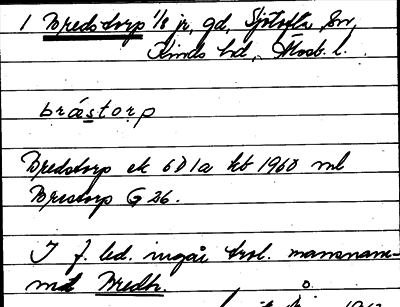 1 Bredstorp 1/8 jr, gd, Sjötofta sn,
Kinds hd, Älvsb. l.
bræstorp
Bredstorp ek 6D1a kb 1960 ml
Brestorp G 26.
I f. led. ingår trol. mansnam-
net Bredh.